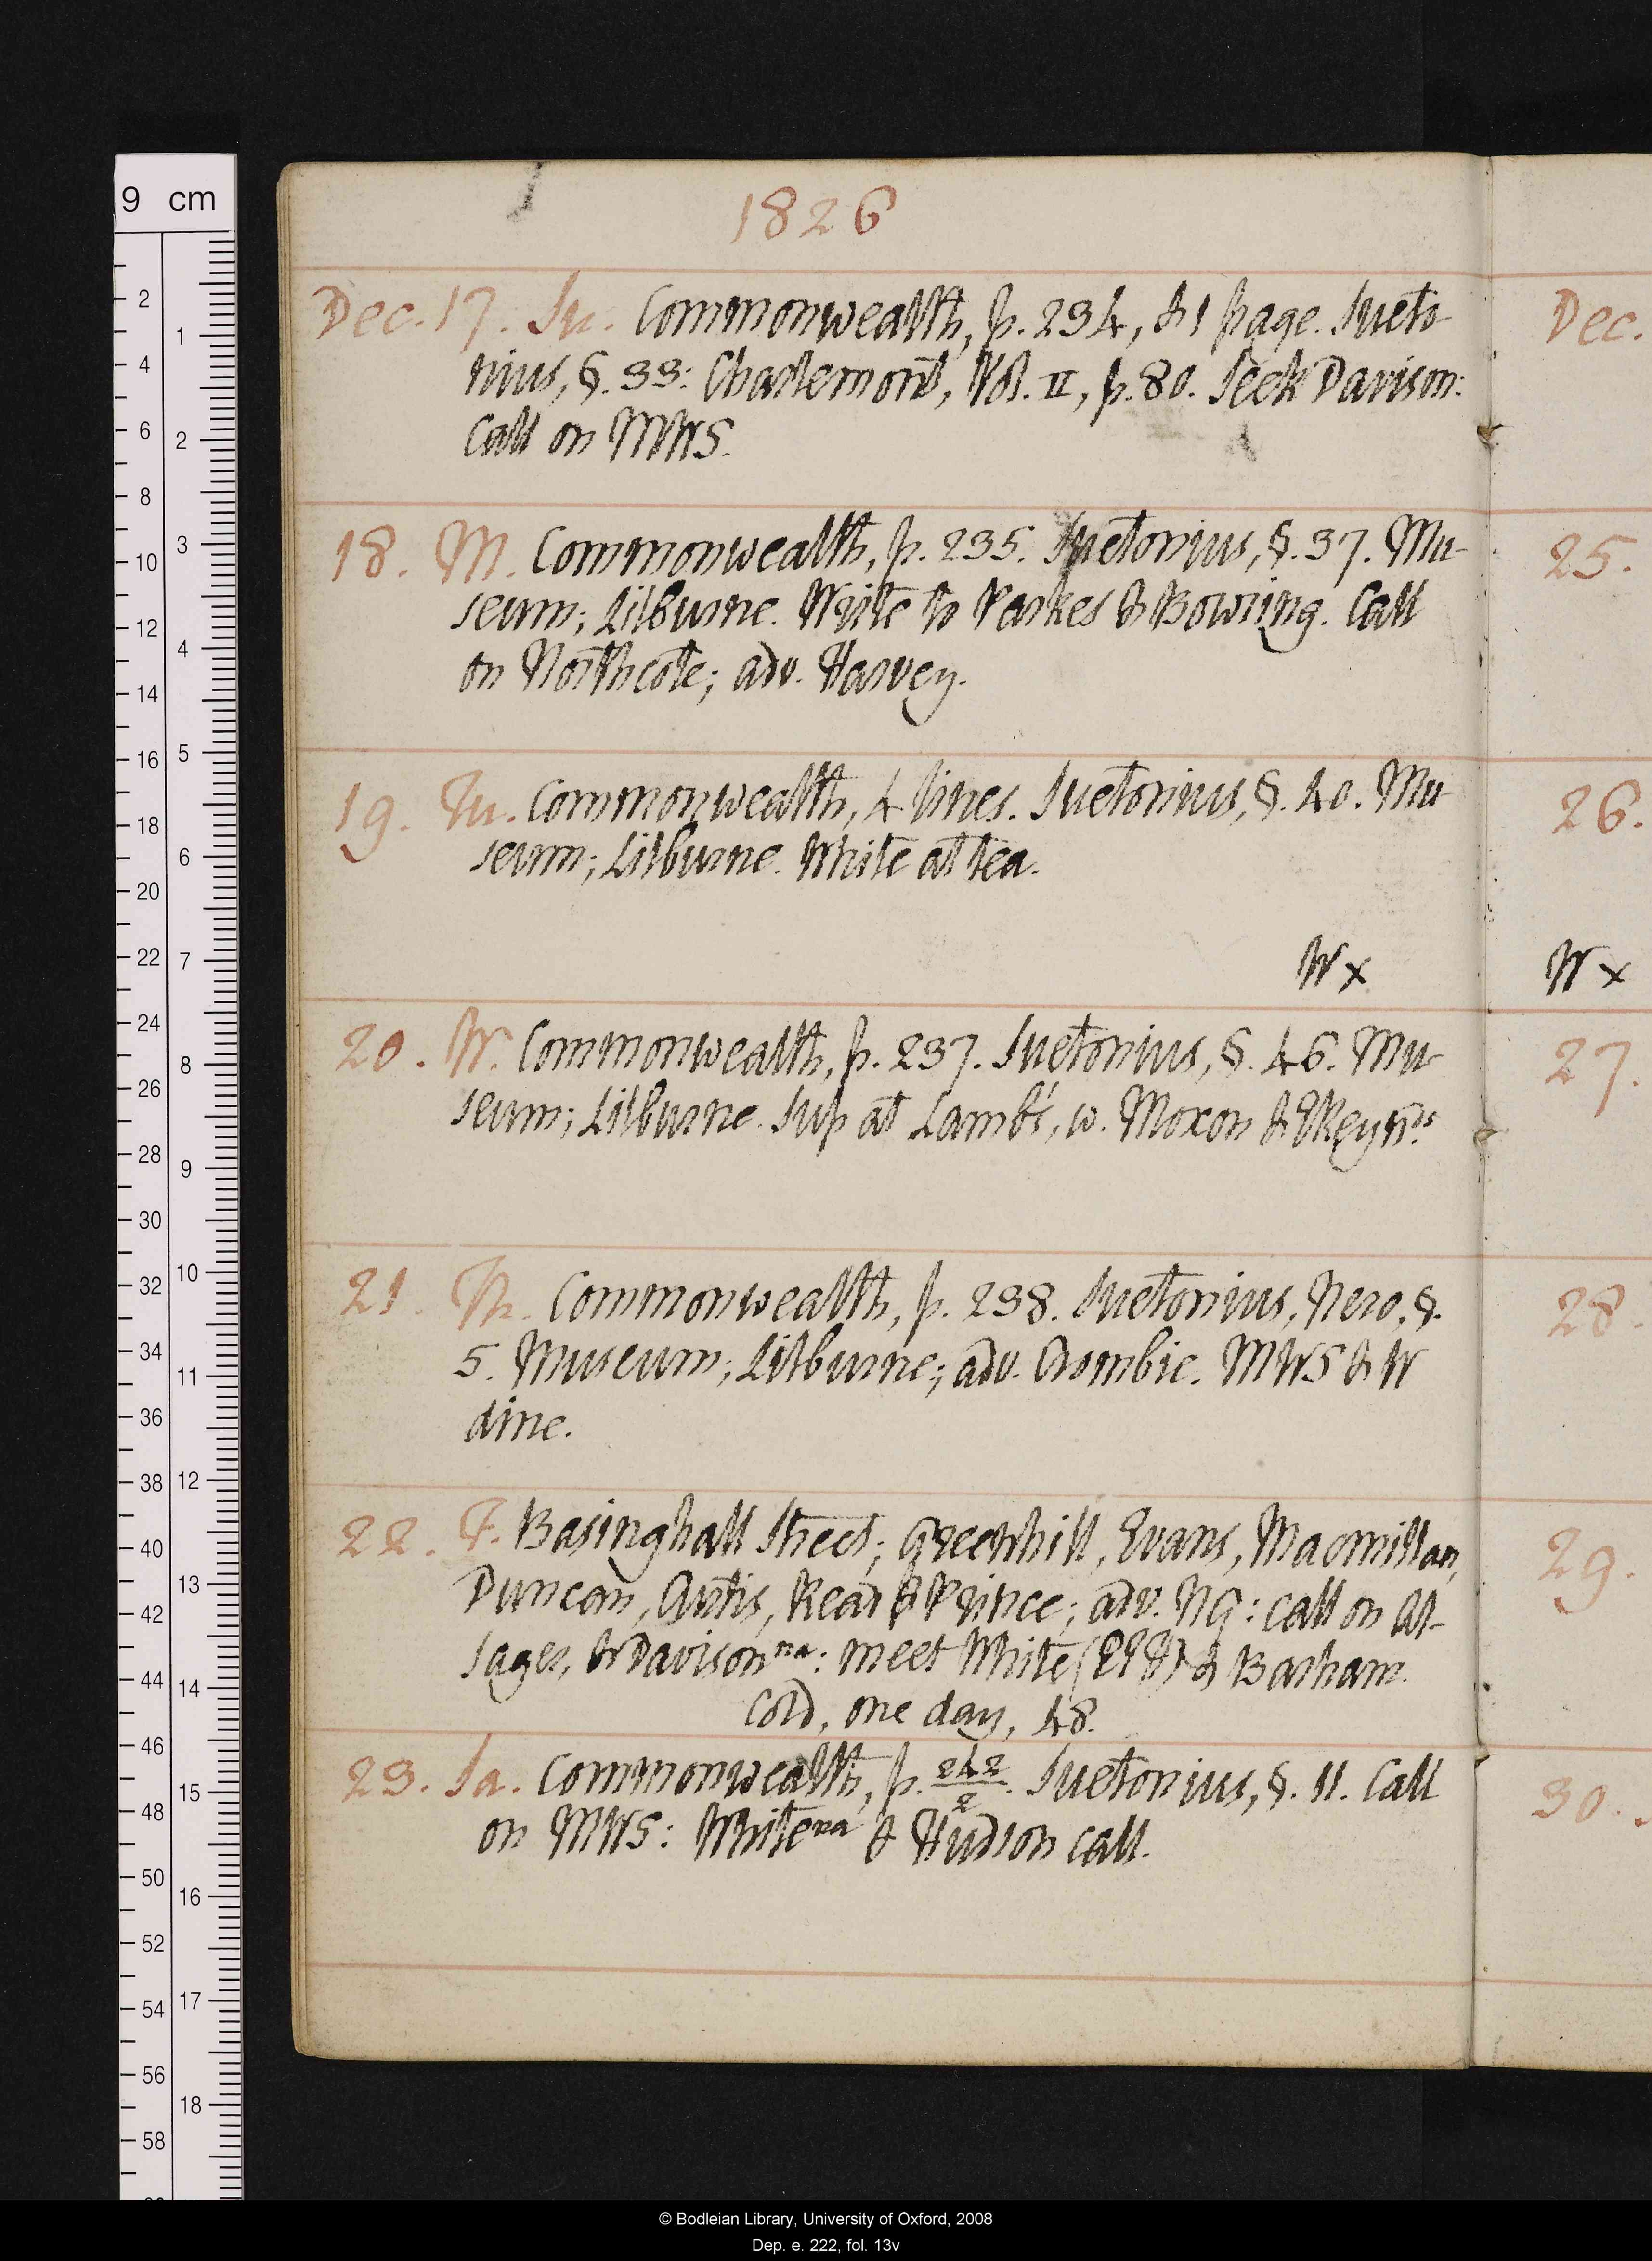 1826
Dec. 17. Su. Commonwealth, p. 234, & 1 page. Sueto-
nius, §. 33: Charlemont, Vol. II, p. 80. Seek Davison:
Call on MWS.
18. M. Commonwealth, p. 235. Suetonius, §. 37. Mu-
seum; Lilburne. Write to Parkes & Bowring. Call
on Northcote; adv. Harvey.
19. Tu. Commonwealth, 4 lines. Suetonius, §. 40. Mu-
seum; Lilburne. White at tea.
W x
20. W. Commonwealth, p. 237. Suetonius, §. 46. Mu-
seum; Lilburne. Sup at Lamb's, w. Moxon &
21. Th. Commonwealth, p. 238. Suetonius, Nero, §.
5. Museum; Lilburne; adv. Crombie. MWS & W
dine.
22. F. Basinghall Street; Greenhill, Evans, Macmillan,
Duncan, Curtis, Read & Prince; adv. NG: call on Al-
sager, & Davison na: meet White & Basham.
Cold, one day, 48.
23. Sa. Commonwealth, p. 242/2. Suetonius, §. 11. Call
on MWS: White na & Hudson call.
Dec.
25.
26.
W x
27.
28.
29.
30.
9 cm
2
4
6
8
10
12
14
16
18
20
22
24
26
28
30
32
34
36
38
40
42
44
46
48
50
52
54
56
58
1
2
3
4
5
6
7
8
9
10
11
12
13
14
15
16
17
18
© Bodleian Library, University of Oxford, 2008
Dep. e. 222, fol. 13v